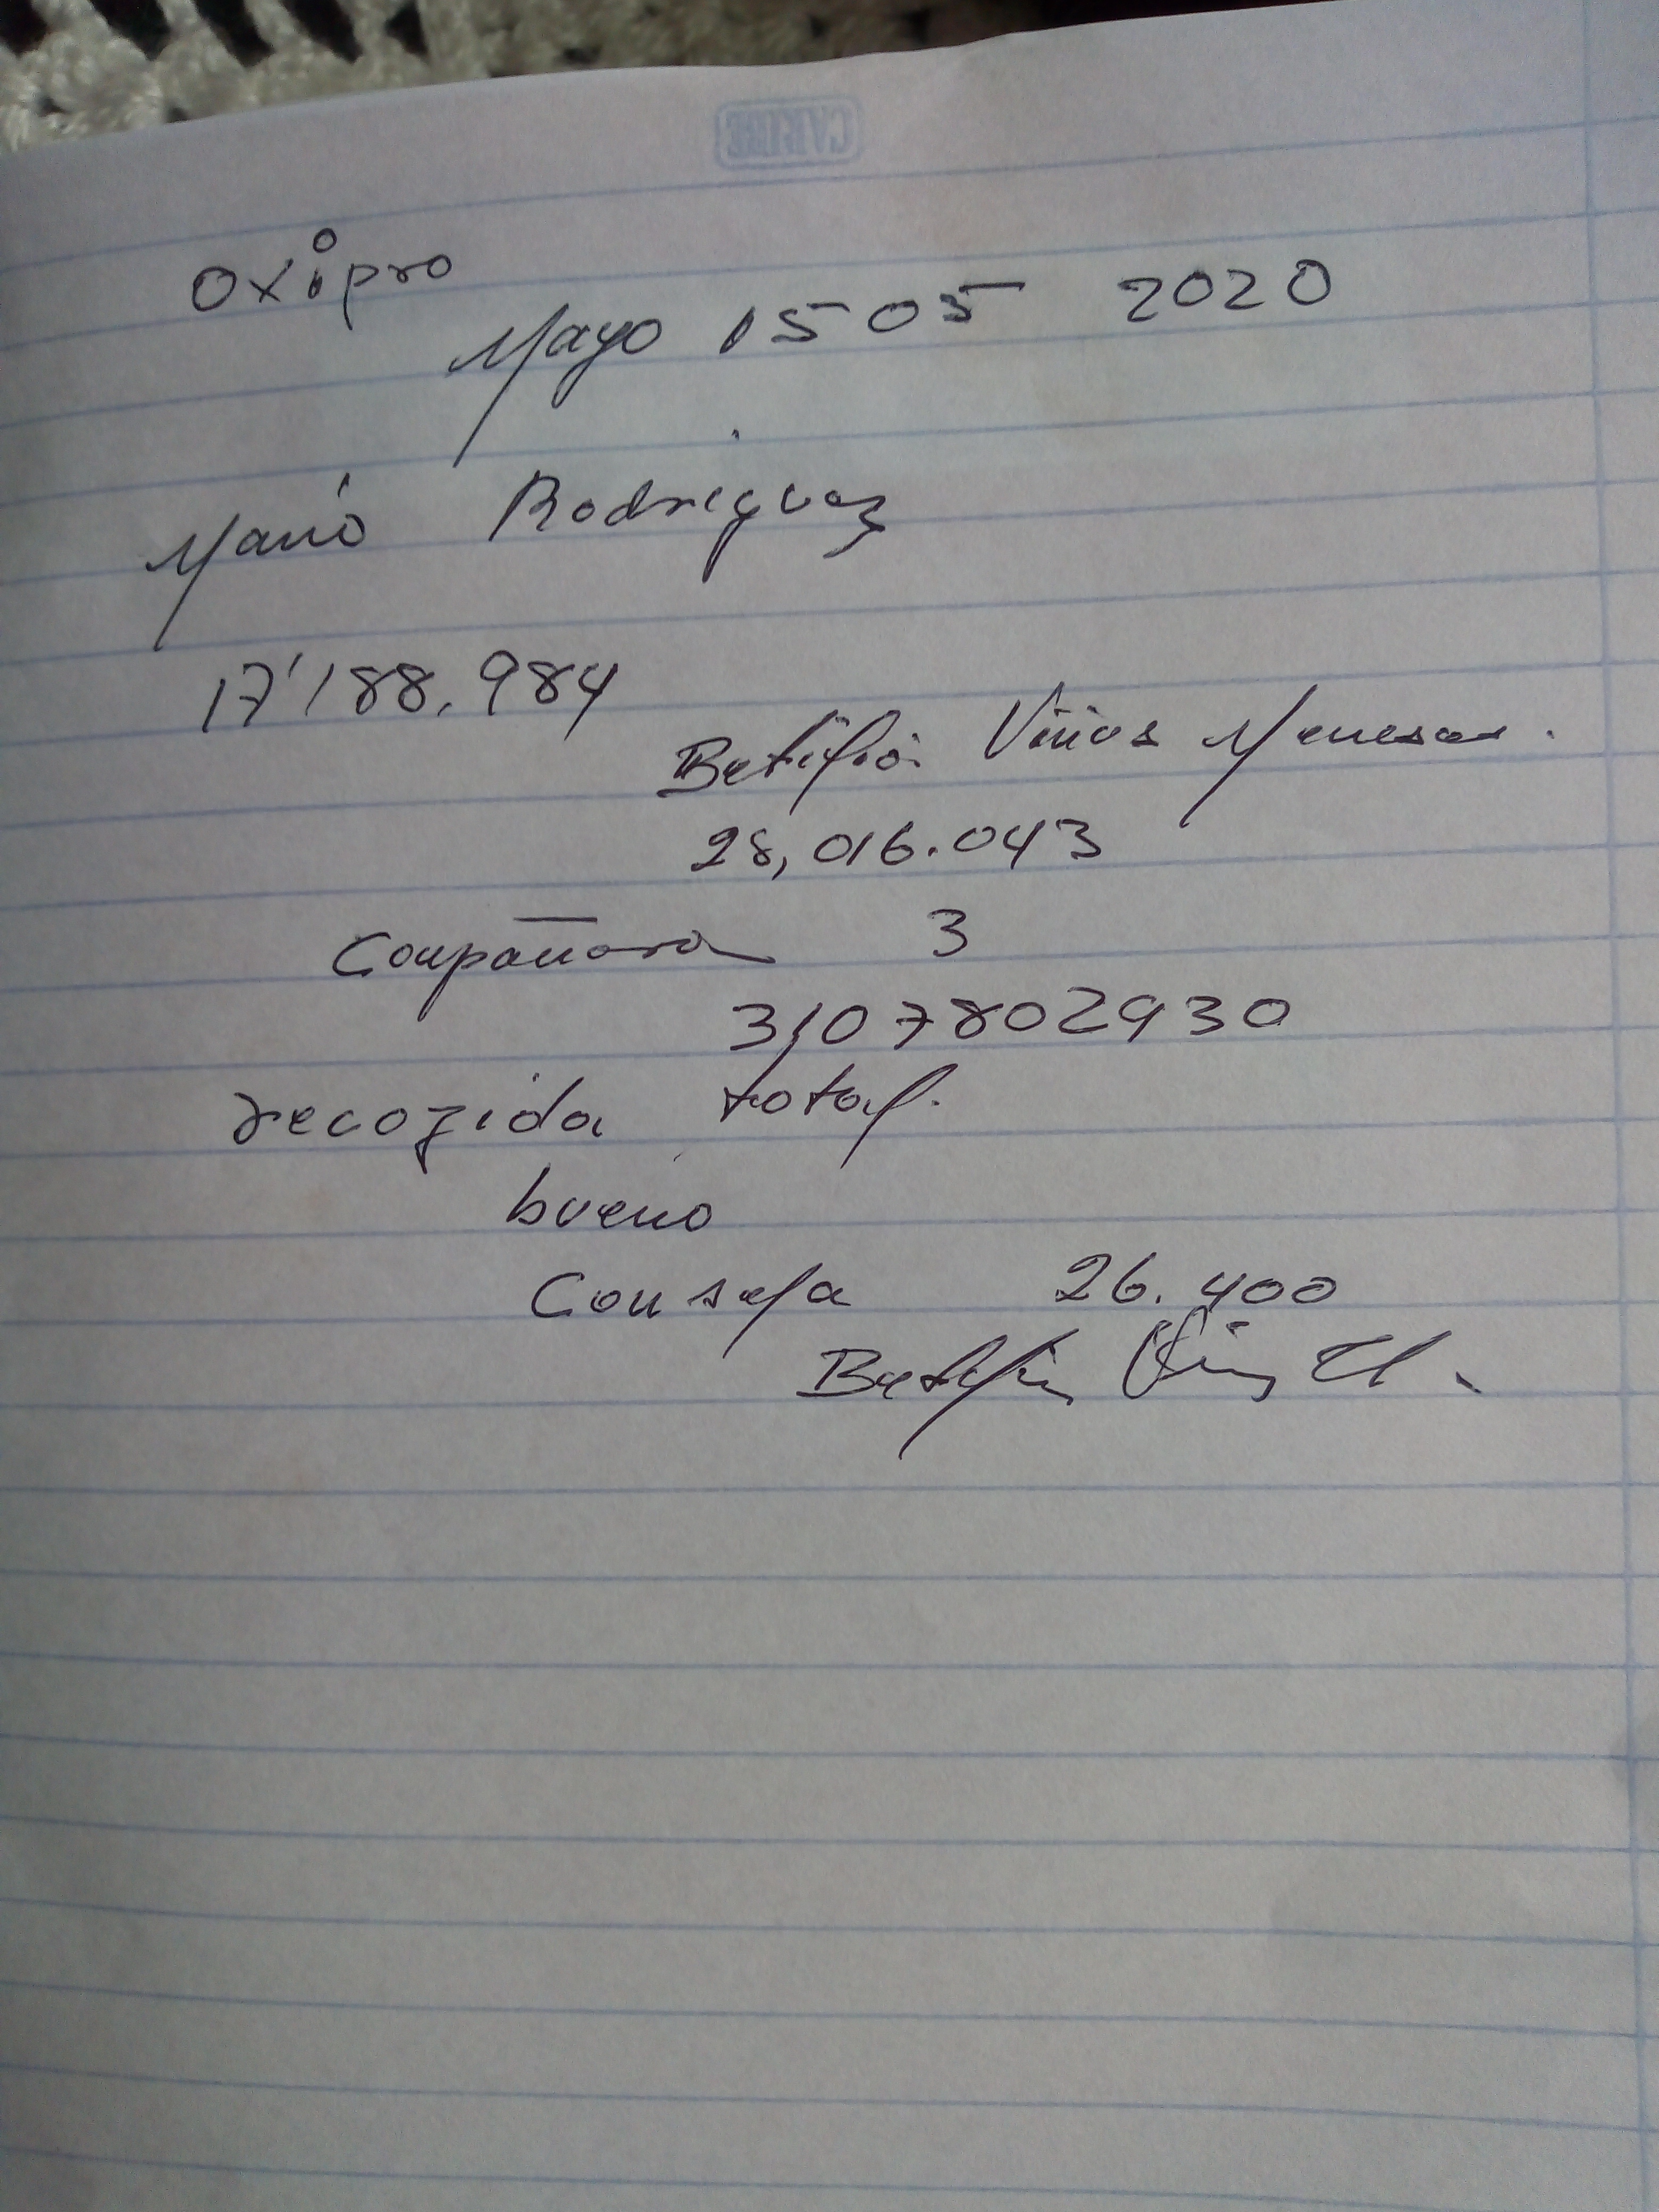 CARIBE
oxipro
Mayo 15 05 2020
Mario Rodriguez
17'188.984
Betifia Viñas Meneses.
28,016.043
Compañara 3
3107802930
recogida total.
bueno
26.400